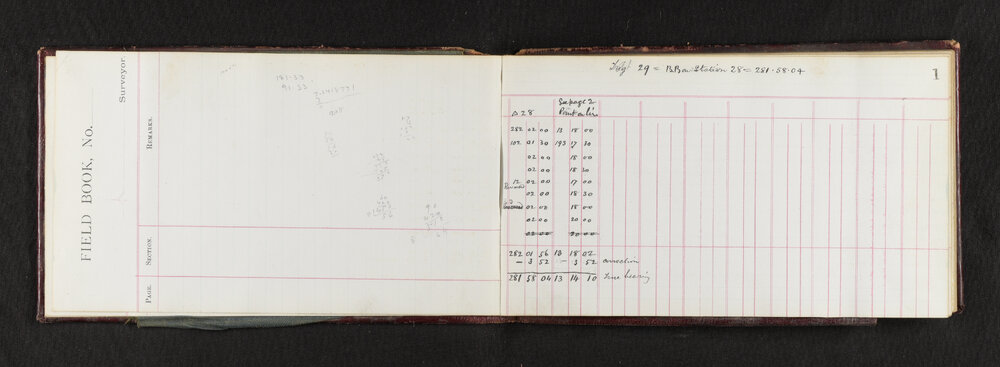 FIELD BOOK, No.
Surveyor.
REMARKS.
SECTION.
PAGE.
181-53
91-53
29 = B.B on Station 28 = 281.58.04
1
See page 2
△ 28 Point on line
282 02 00 13 18 00
102 01 30 193 17 30
02 00 18 00
02 00 18 30
12 02 00 17 00
02 00 18 30
02 02 18 00
02 00 20 00
02 00 20 00
282 01 56 13 18 02
- 3 52 - 3 52 correction
281 58 04 13 14 10 True bearing